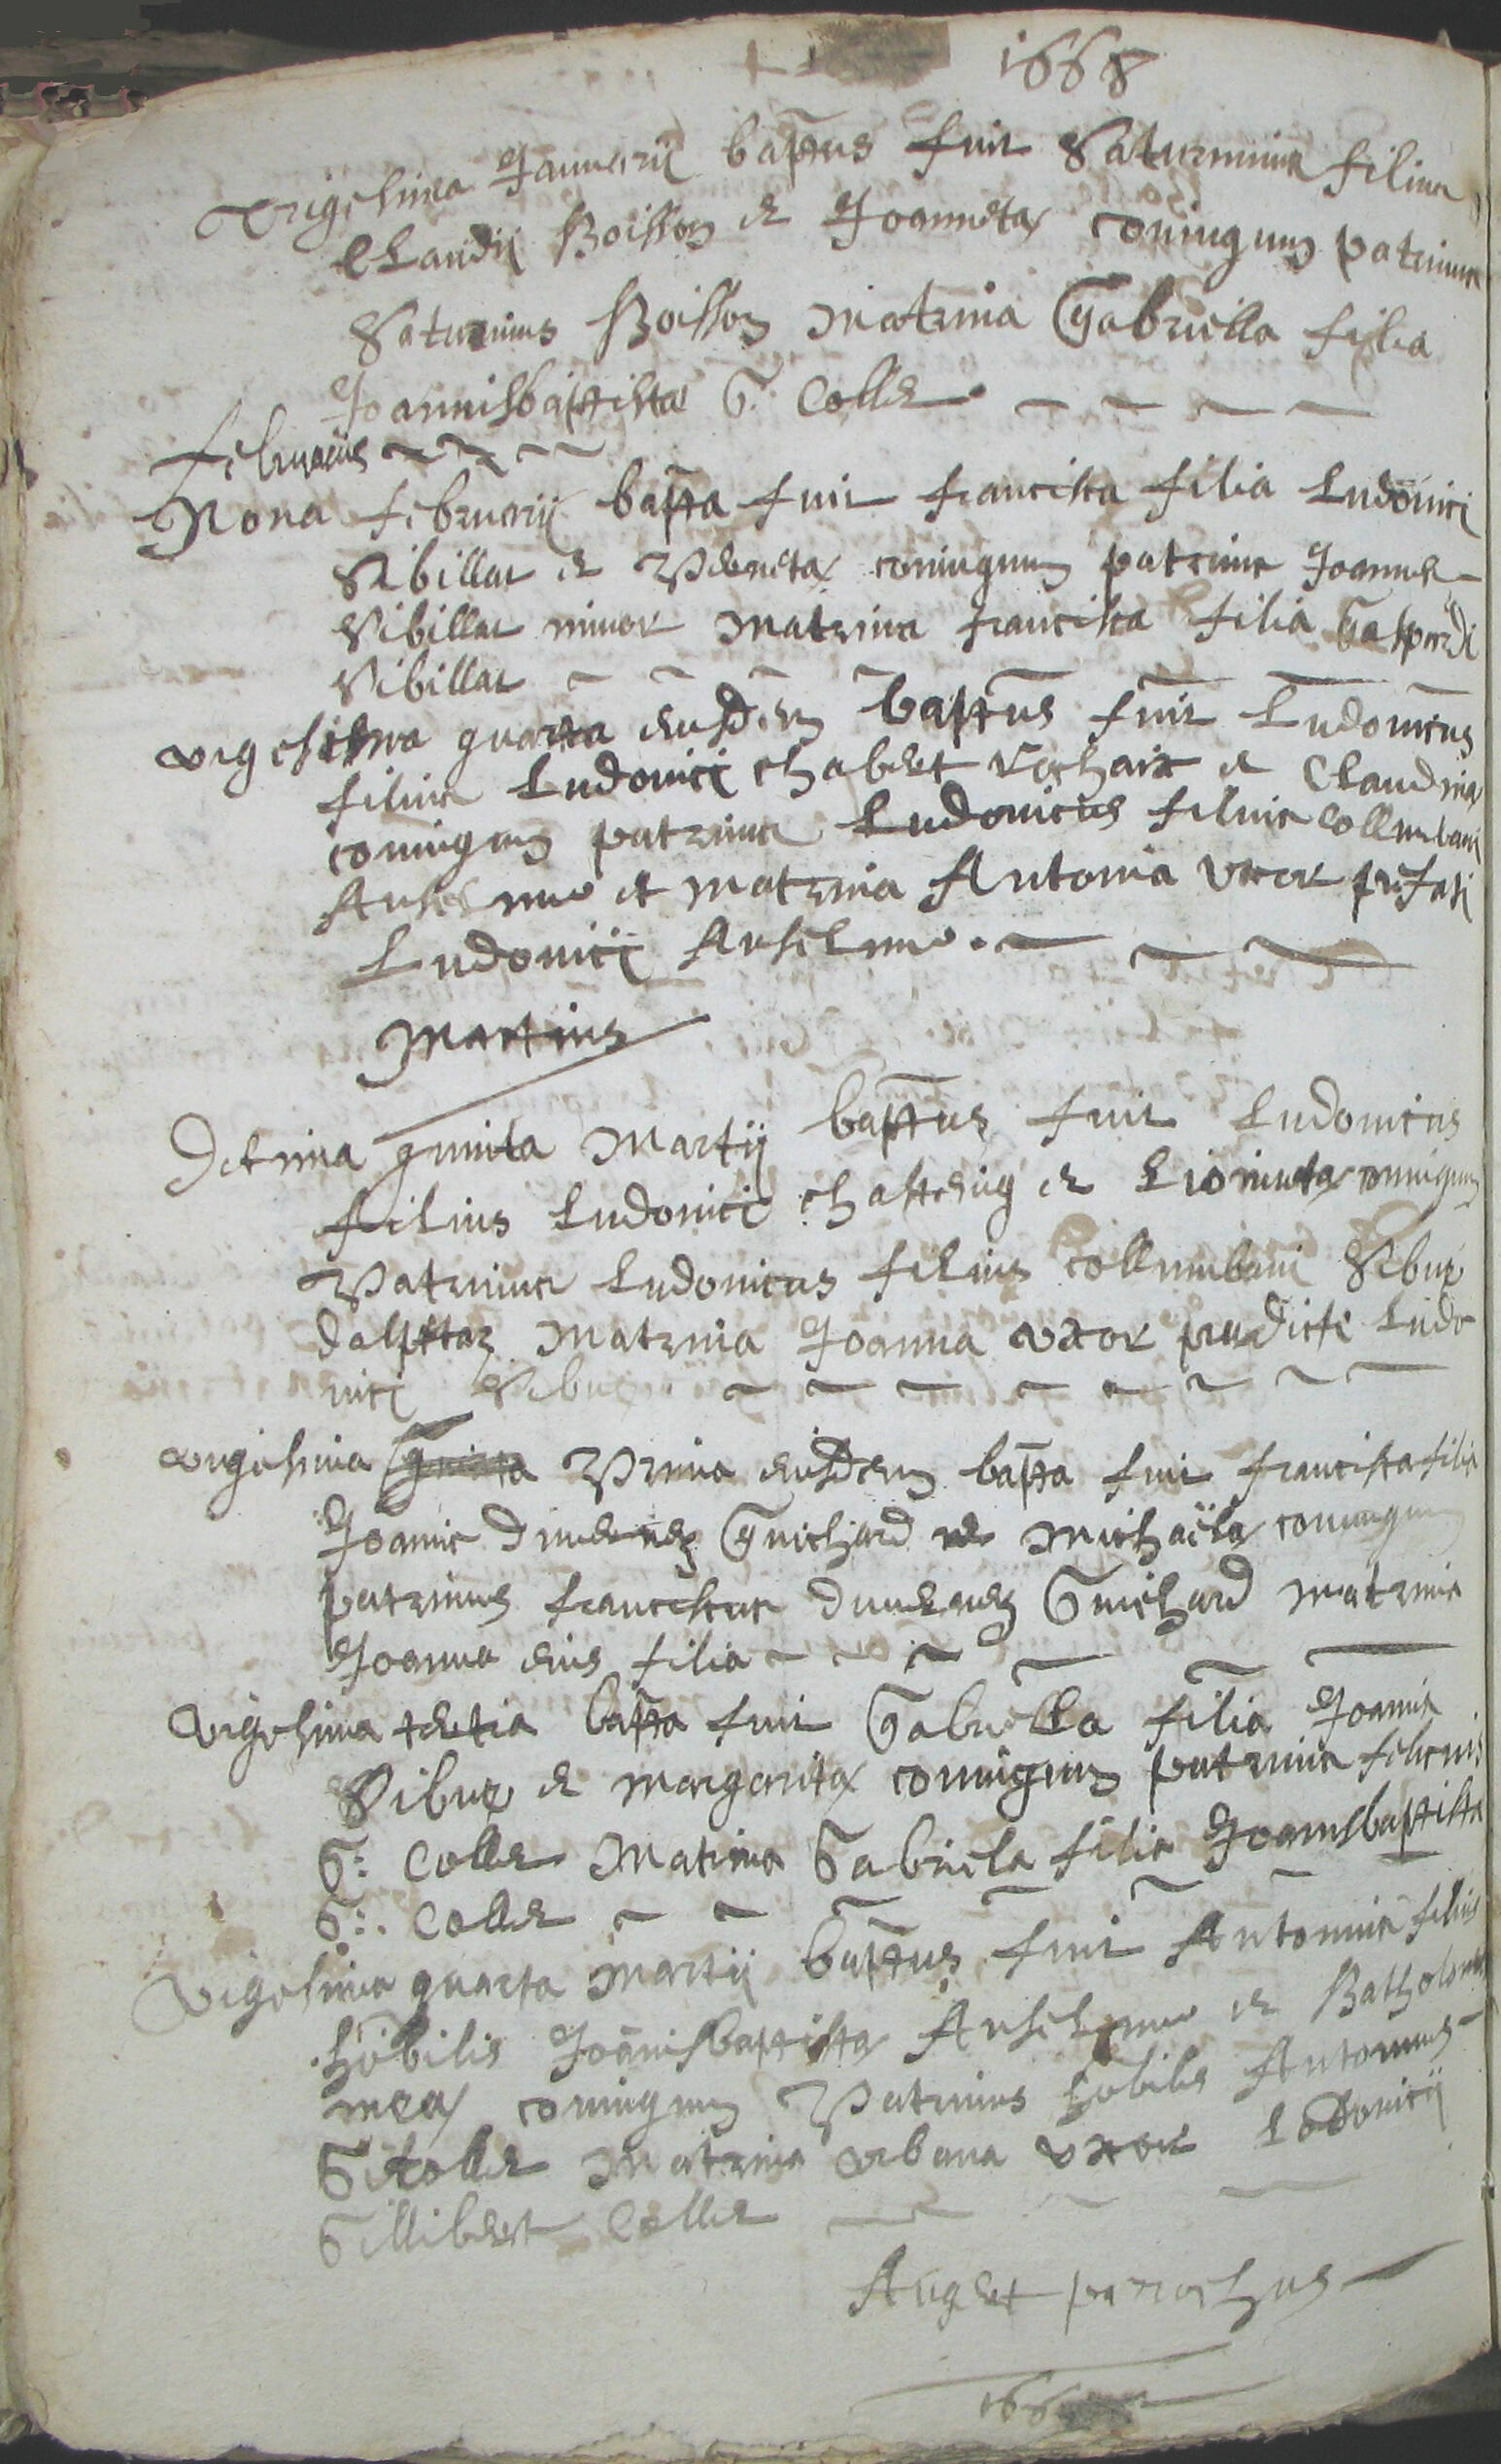 1668
Trigesima Januarij bap̃tus fuit Saturninus filius
Claudij Boisson et Joannetæ coniugum patrinus
Saturninus Boisson Matrina Gabriella filia
Joannisbaptistæ G: Colle
februarius
Nona februarij bap̃ta fuit francisca filia Ludovici
Sibillat et Pernetæ coniugum patrinus Joannes
Sibillat minor Matrina francisca filia Gaspardi
Sibillat
vigesima quarta eiusdem bap̃tus fuit Ludovicus
filius Ludovici chabert rochaix et Claudinæ
coniugum patrinus Ludovicus filius Collumbani
Anselmo et matrina Antonia uxor præfati
Ludovici Anselmo
Martius
Decima quinta Martij bap̃tus fuit Ludovicus
filius Ludovici et coniugum
Patrinus Ludovicus filius Collumbani Sibue
Matrina Joanna uxor prædicti Ludo
vici Sibue
vigesima quinta Prima eiusdem bap̃ta fuit francisca filia
Joannis Guichard et Michaelæ coniugum
patrinus franciscus Guichard matrina
Joanna eius filia
Vigesima tertia bap̃ta fuit Gabriella filia Joannis
Sibue et margaritæ coniugum patrinus
G: Colle Matrina Gabriela filia Joannisbaptistæ
G: Colle
Vigesima quarta Martij bap̃tus fuit Antonius filius
Nobilis Joannisbaptistæ Anselmo et Batholo
meæ coniugum Patrinus Nobilis Antonius
G: Colle Matrina urbana uxor Lodovicij
Gillibert Colle
Auget parochus
166